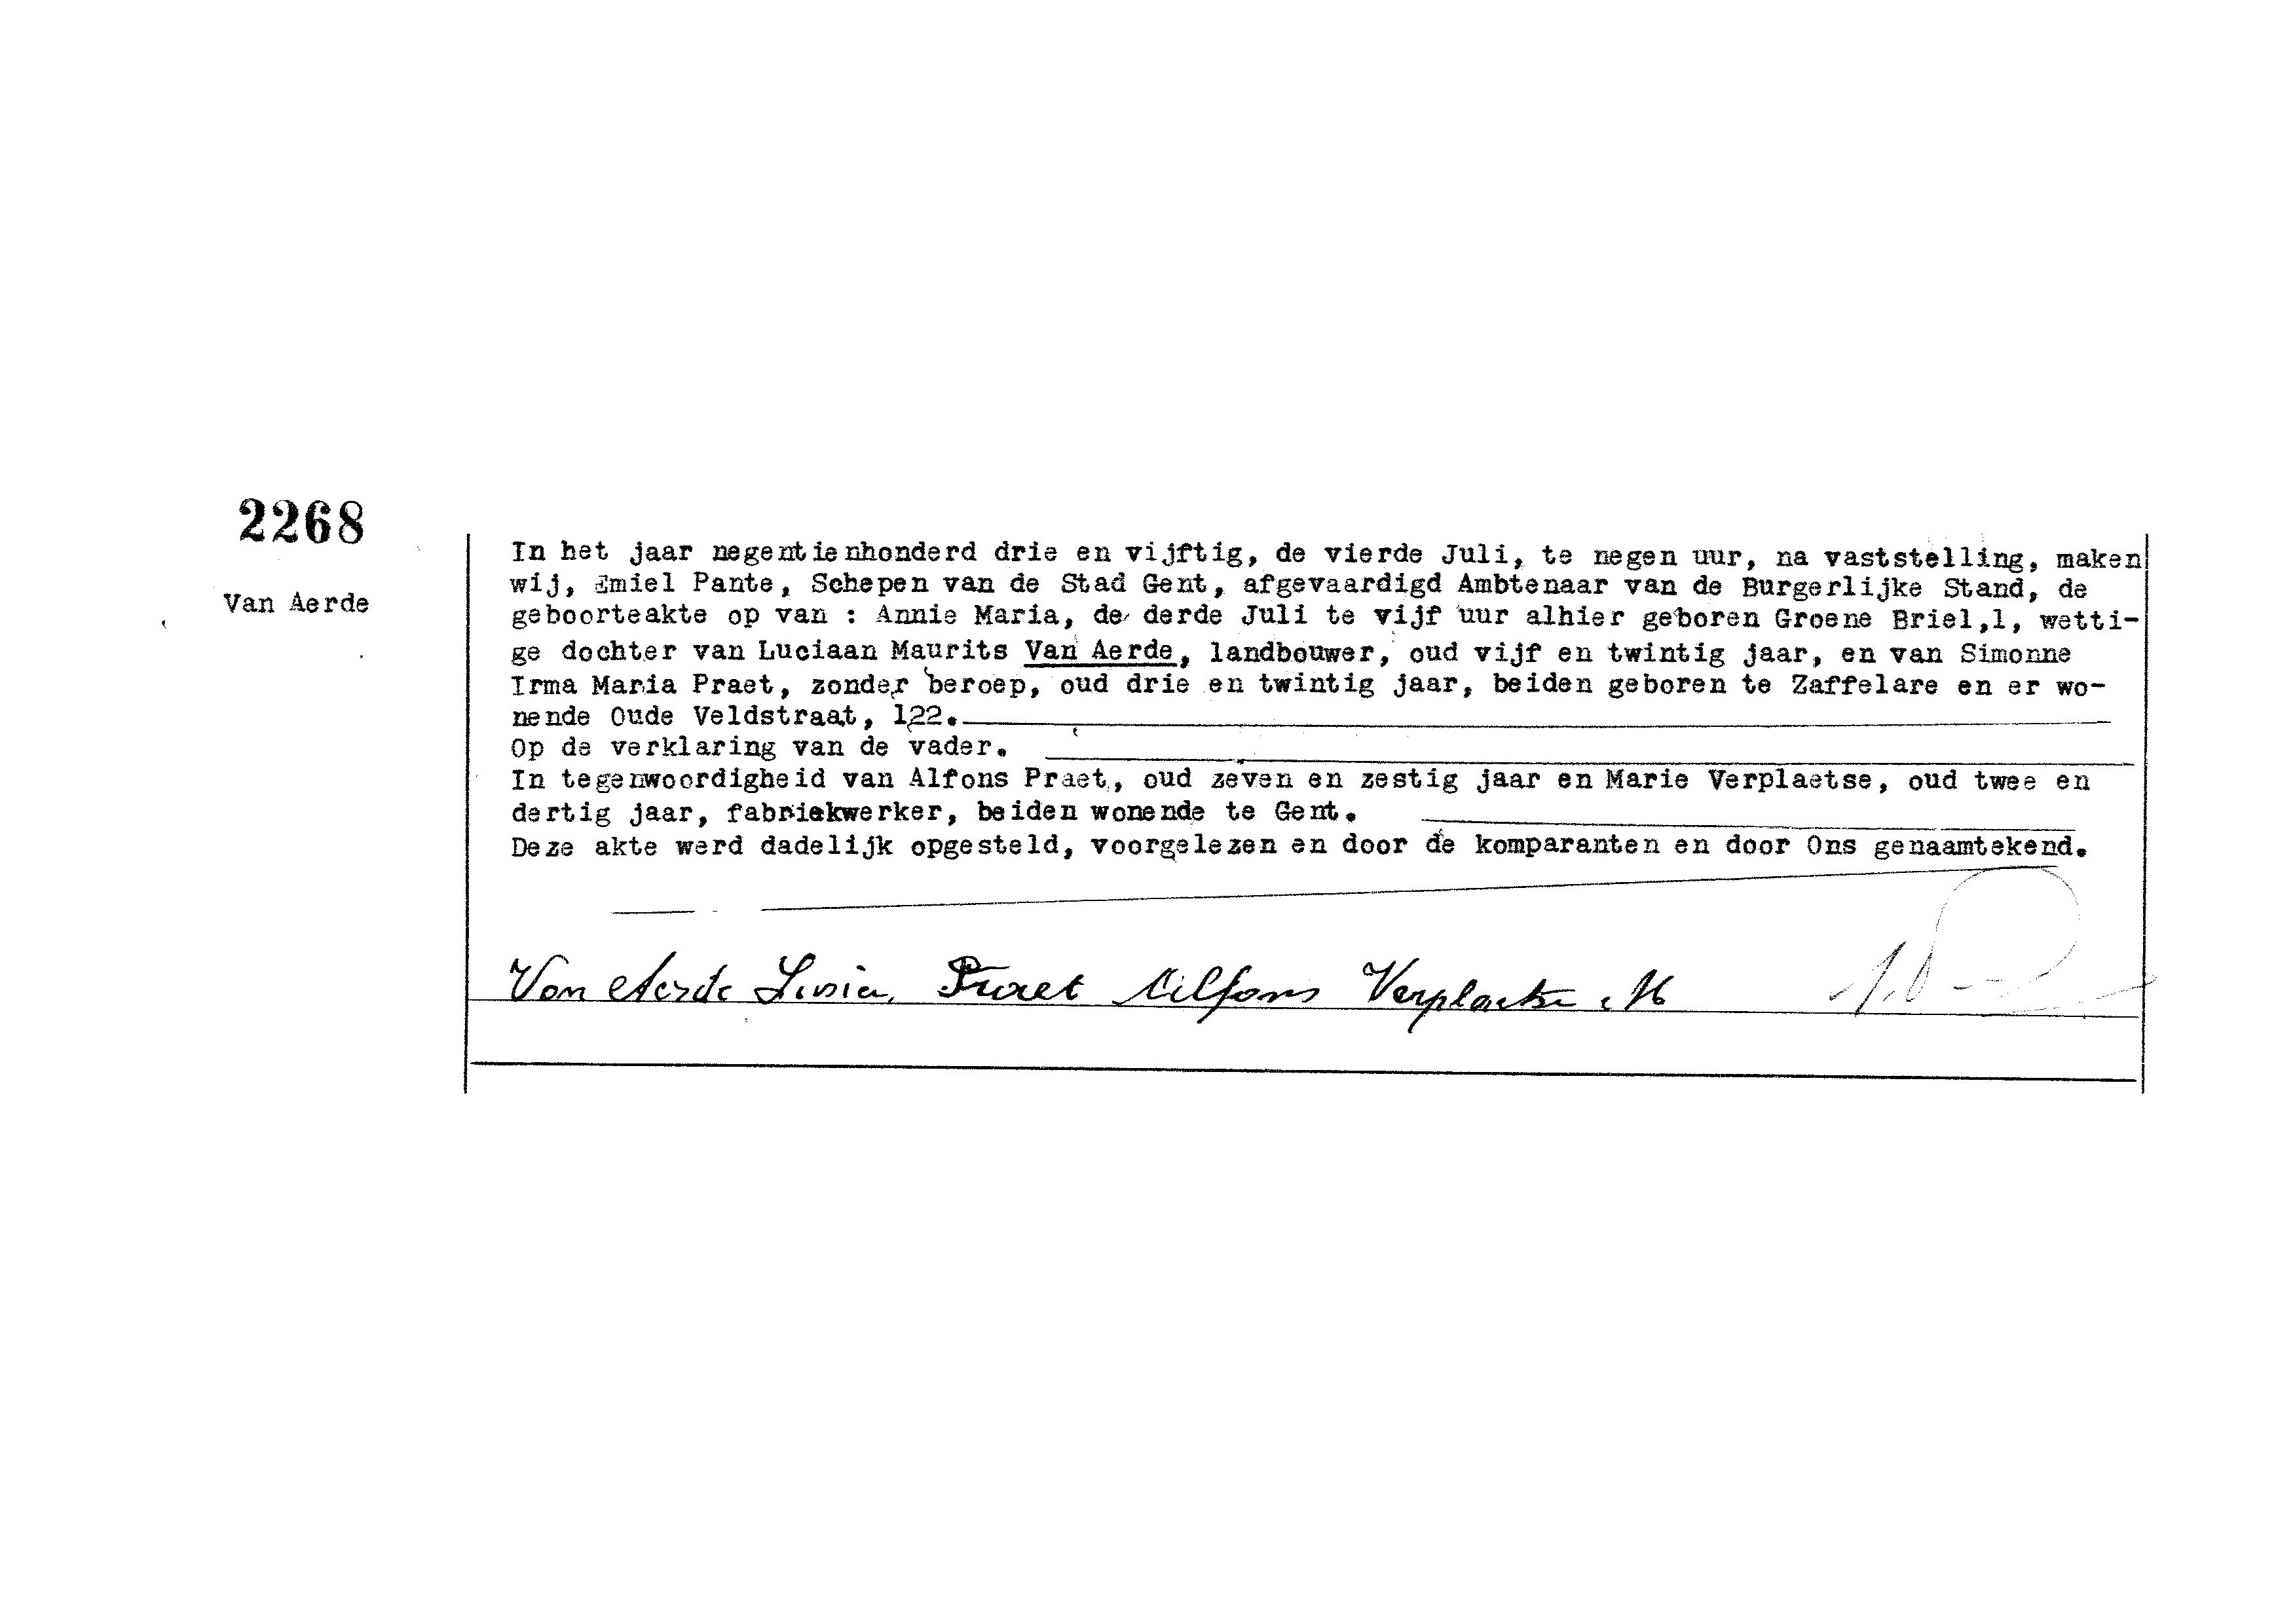 2268
Van Aerde
In het jaar negentienhonderd drie en vijftig, de vierde Juli, te negen uur, na vaststelling, maken
wij, Emiel Pante, Schepen van de Stad Gent, afgevaardigd Ambtenaar van de Burgerlijke Stand, de
geboorteakte op van : Annie Maria, de derde Juli te vijf uur alhier geboren Groene Briel,1, wetti-
ge dochter van Luciaan Maurits Van Aerde, landbouwer, oud vijf en twintig jaar, en van Simonne
Irma Maria Praet, zonder beroep, oud drie en twintig jaar, beiden geboren te Zaffelare en er wo-
nende Oude Veldstraat, 122.
Op de verklaring van de vader.
In tegenwoordigheid van Alfons Praet, oud zeven en zestig jaar en Marie Verplaetse, oud twee en
dertig jaar, fabriekwerker, beiden wonende te Gent.
Deze akte werd dadelijk opgesteld, voorgelezen en door de komparanten en door Ons genaamtekend.
Van Aerde Praet Alfons Verplaetse M